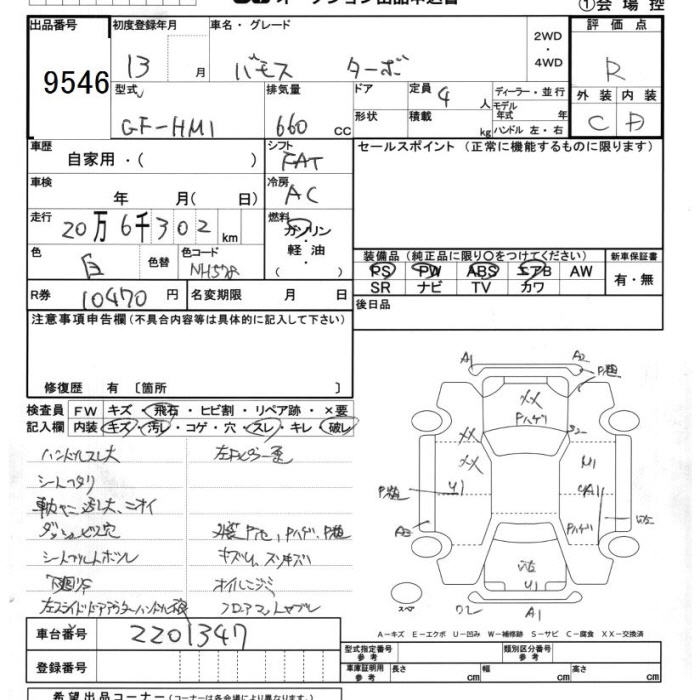 オークション出品申込書
①会場控
出品番号 初度登録年月 車名・グレード 評価点
9546 13 月 バモス ターボ 2WD・4WD R
型式 排気量 ドア 定員 4 人 ディーラー・並行 外装 内装
GF-HM1 660 cc 形状 積載 kg モデル年式 年 C D
ハンドル 左・右
車歴 シフト セールスポイント (正常に機能するものに限ります)
自家用・( ) FAT
車検 冷房
年 月( 日) AC
走行 燃料
20万6千302 km ガソリン・軽油・( )
色 白 色替 色コード NH578
装備品 (純正品に限り○をつけてください) 新車保証書
PS PW ABS エアB AW 有・無
SR ナビ TV カワ
R券 10470 円 名変期限 月 日 後日品
注意事項申告欄 (不具合内容等は具体的に記入して下さい)
修復歴 有 [箇所 ]
検査員 FW キズ・飛石・ヒビ割・リペア跡・×要
記入欄 内装 キズ・汚レ・コゲ・穴・スレ・キレ・破レ
ハンドルスレ大
シートヘタリ
シートアルトボルト
下廻りサ
オイルニジミ
A1 A2 P瑕
XX
Pハゲ
XX S2
XX
P瑕 U1 U1 YA1
A2 Pハゲ
U1
スペア U2 A1
車台番号 2201347
A-キズ E-エクボ U-凹み W-補修跡 S-サビ C-腐食 XX-交換済
型式指定番号 類別区分番号
登録番号
車庫証明用参考 長さ cm 幅 cm 高さ cm
希望出品コーナー (コーナーは各会場により異なります。)